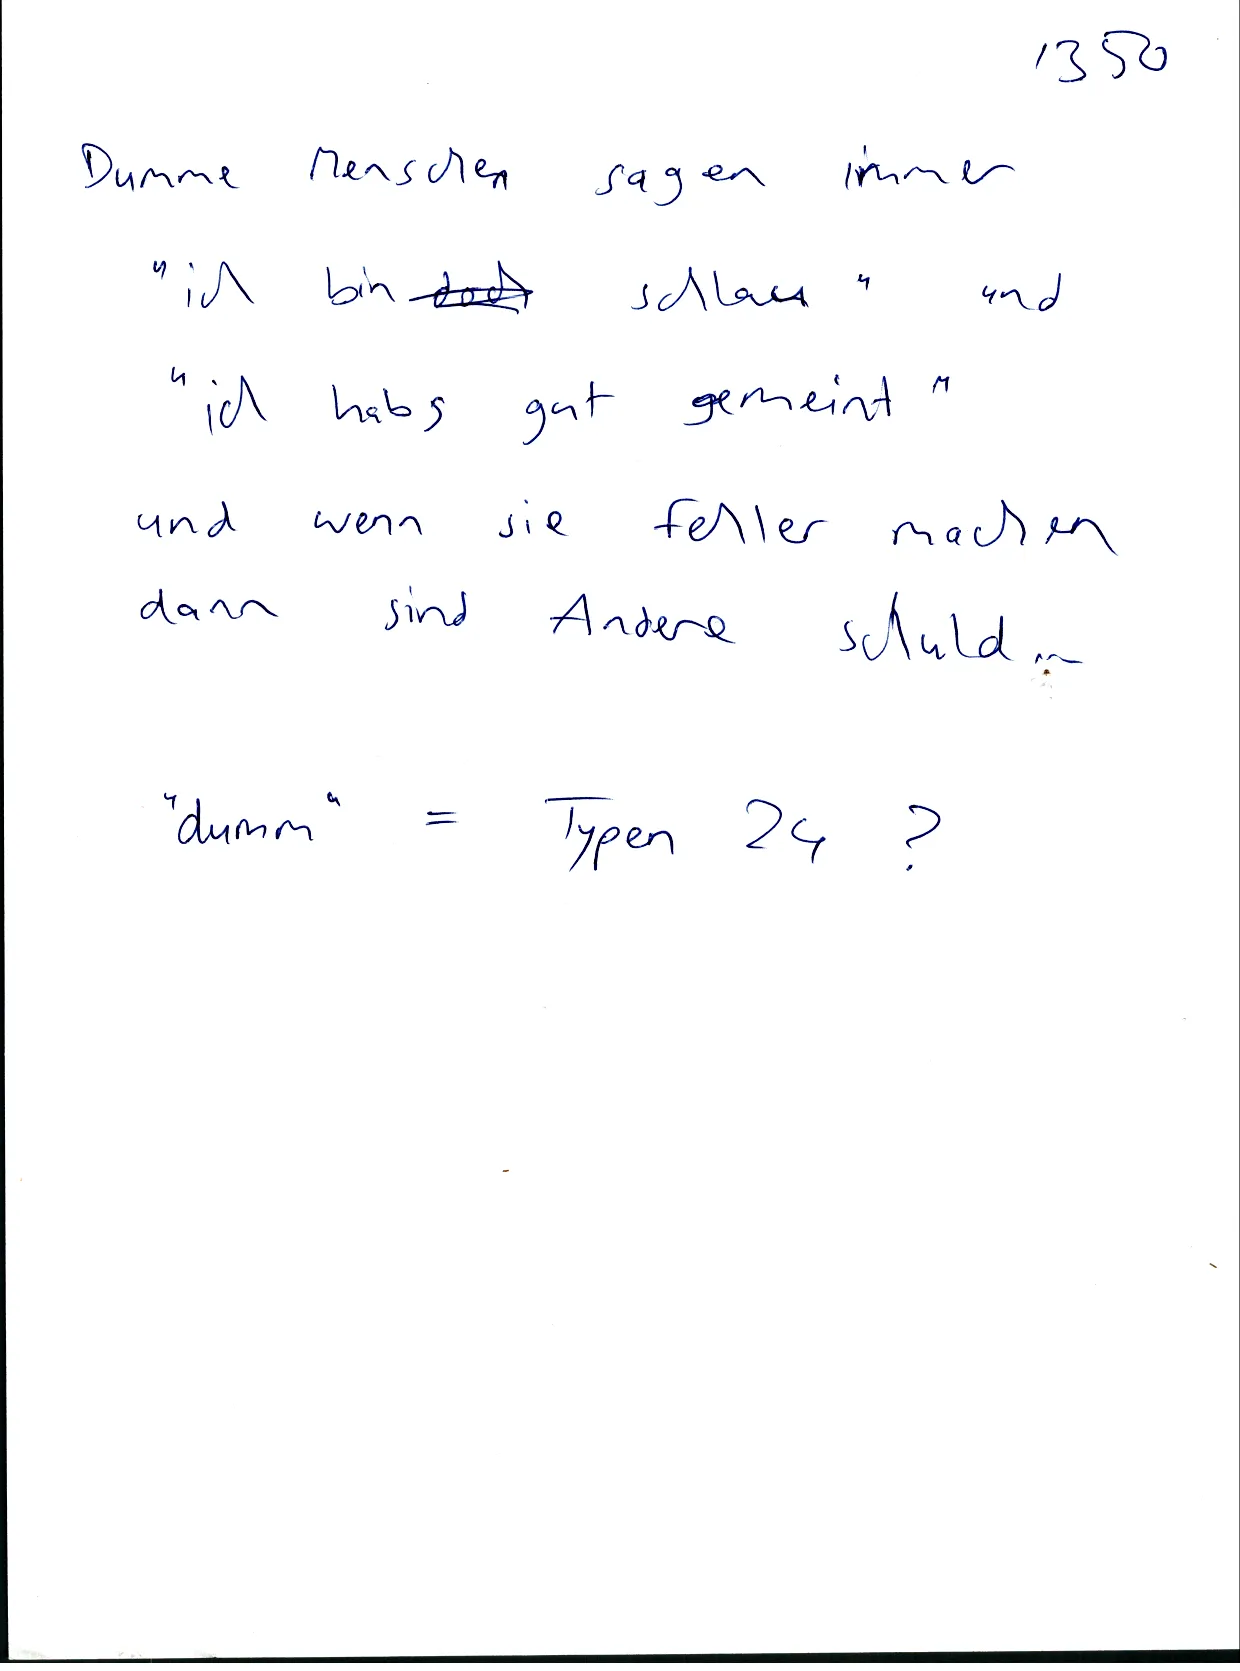 1350
Dumme Menschen sagen immer
"ich bin doch schlau" und
"ich habs gut gemeint"
und wenn sie fehler machen
dann sind Andere schuld...
"dumm" = Typen 24 ?